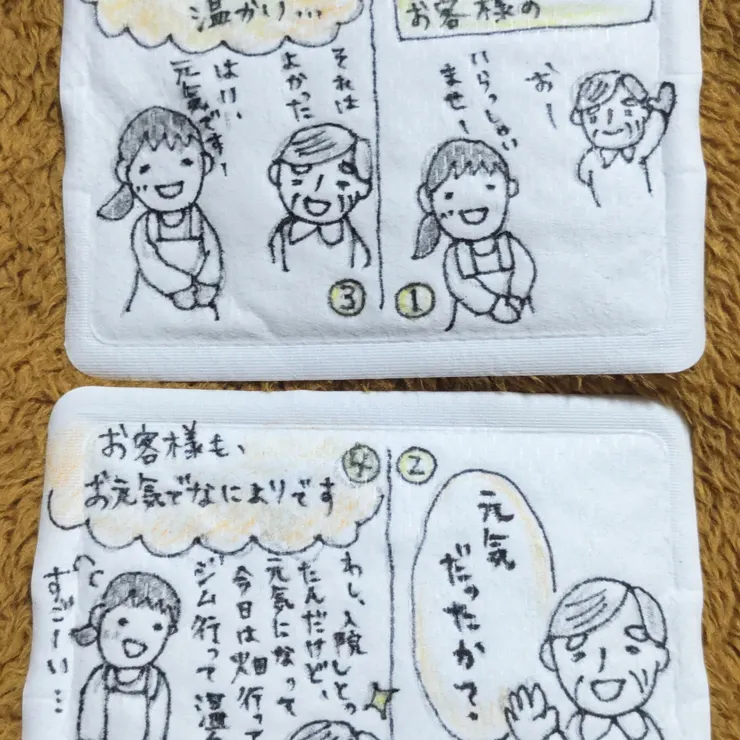 お客様の
おー
いらっしゃい
ませ！
①
温かい…
それは
よかった
はい、
元気です！
③
②
元気
だったか？
④
お客様も、
お元気でなによりです
わし、入院しとっ
たんだけど、
元気になって
今日は畑行って
ジム行って
すごーい…